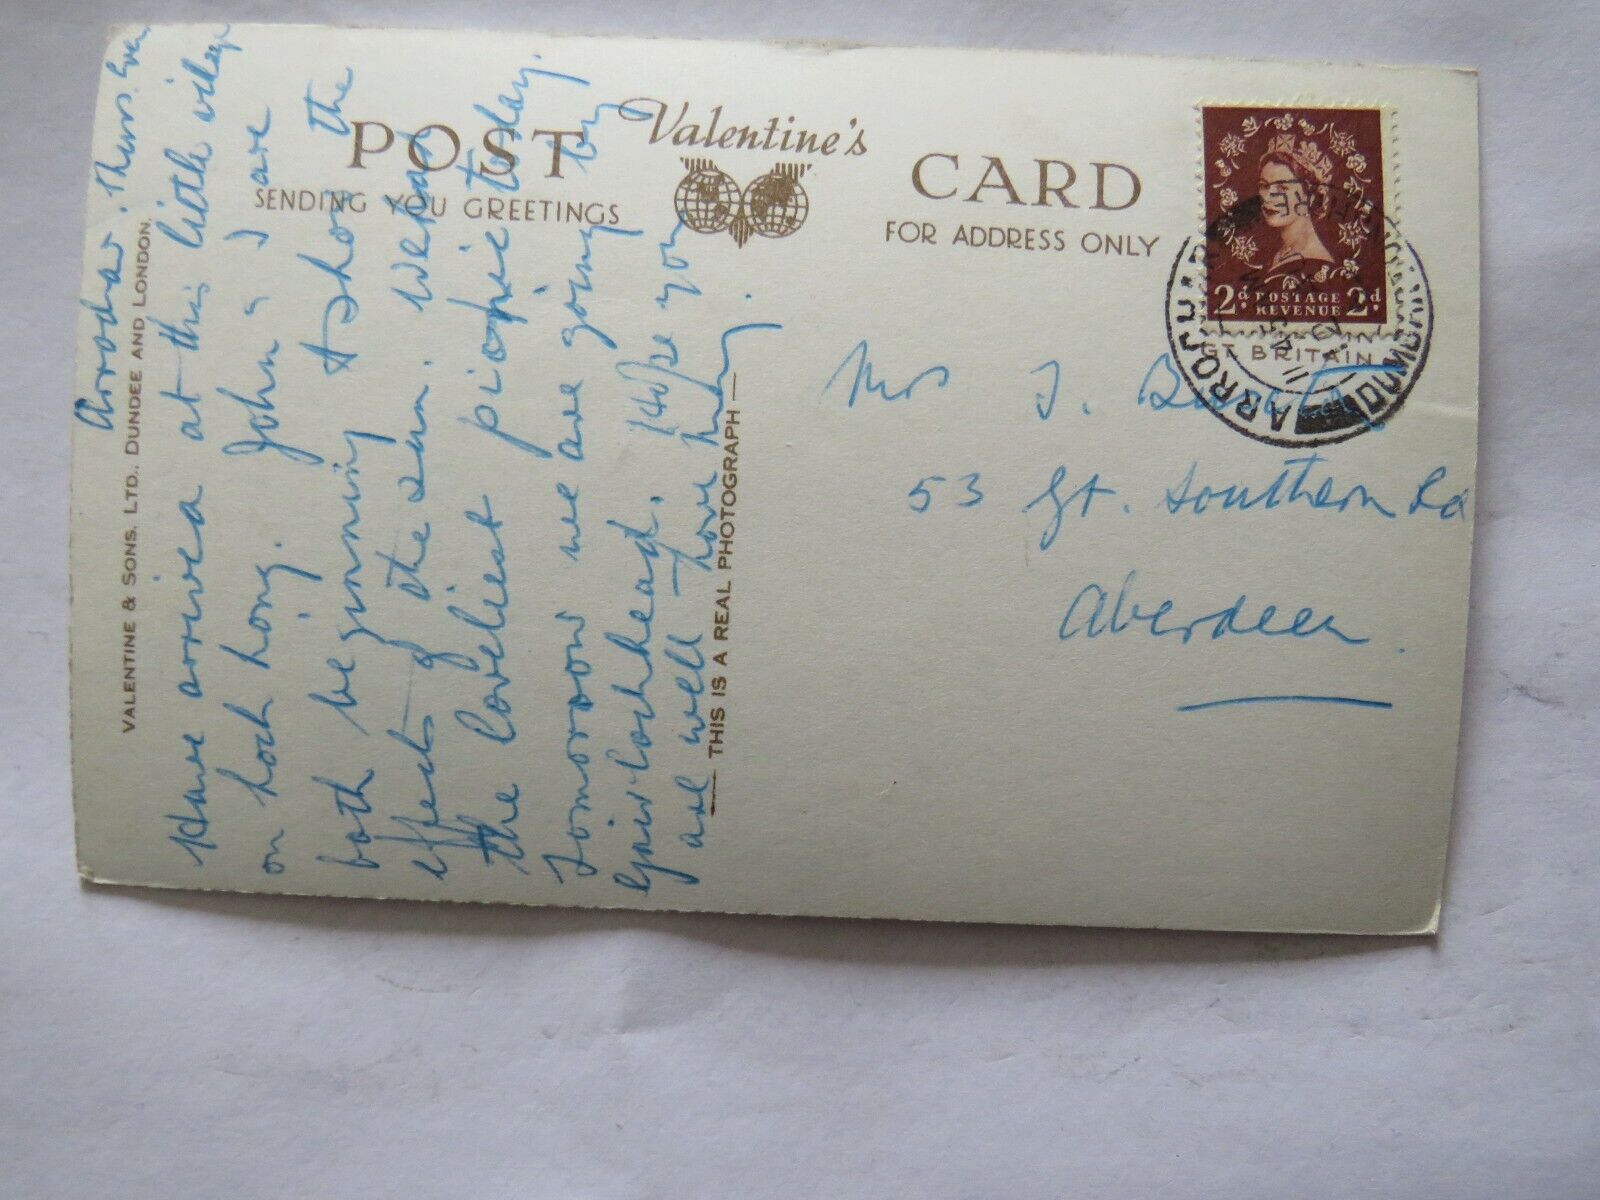 POST CARD
Valentine's
SENDING YOU GREETINGS
FOR ADDRESS ONLY
VALENTINE & SONS. LTD., DUNDEE AND LONDON.
THIS IS A REAL PHOTOGRAPH
Arrochar. Thurs. Eve.
Have arrived at this little village
on Loch Long. John & I are
both beginning to show the
effects of the sun. We had
the loveliest picnic today.
Tomorrow we are going by
Gairlochhead. Hope you
are well love
2d POSTAGE REVENUE 2d
GT. BRITAIN
ARROCHAR
DUMBARTONSHIRE
Mrs J.
53 Gt. Southern Rd
Aberdeen.